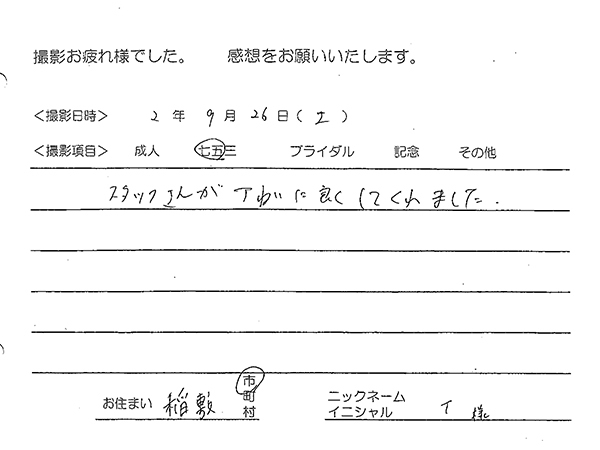 撮影お疲れ様でした。 感想をお願いいたします。
<撮影日時> 2 年 9 月 26 日 ( 土 )
<撮影項目> 成人 七五三 ブライダル 記念 その他
スタッフさんが てねいに良くしてくれました.
お住まい 稲敷 市 町 村
ニックネーム イニシャル T 様